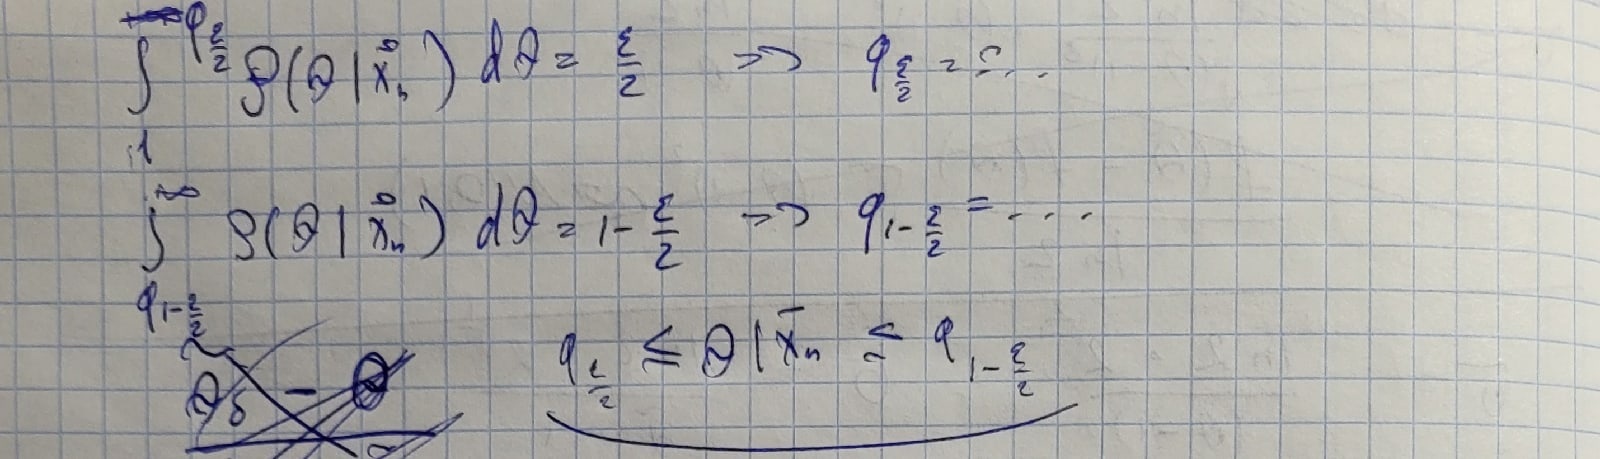 ∫₁^{q_{ε/2}} ρ(θ|x⃗ₙ) dθ = ε/2 ⇒ q_{ε/2} = ...
∫_{q_{1-ε/2}}^{+∞} ρ(θ|x⃗ₙ) dθ = 1 - ε/2 ⇒ q_{1-ε/2} = ....
q_{ε/2} ≤ θ|x⃗ₙ ≤ q_{1-ε/2}